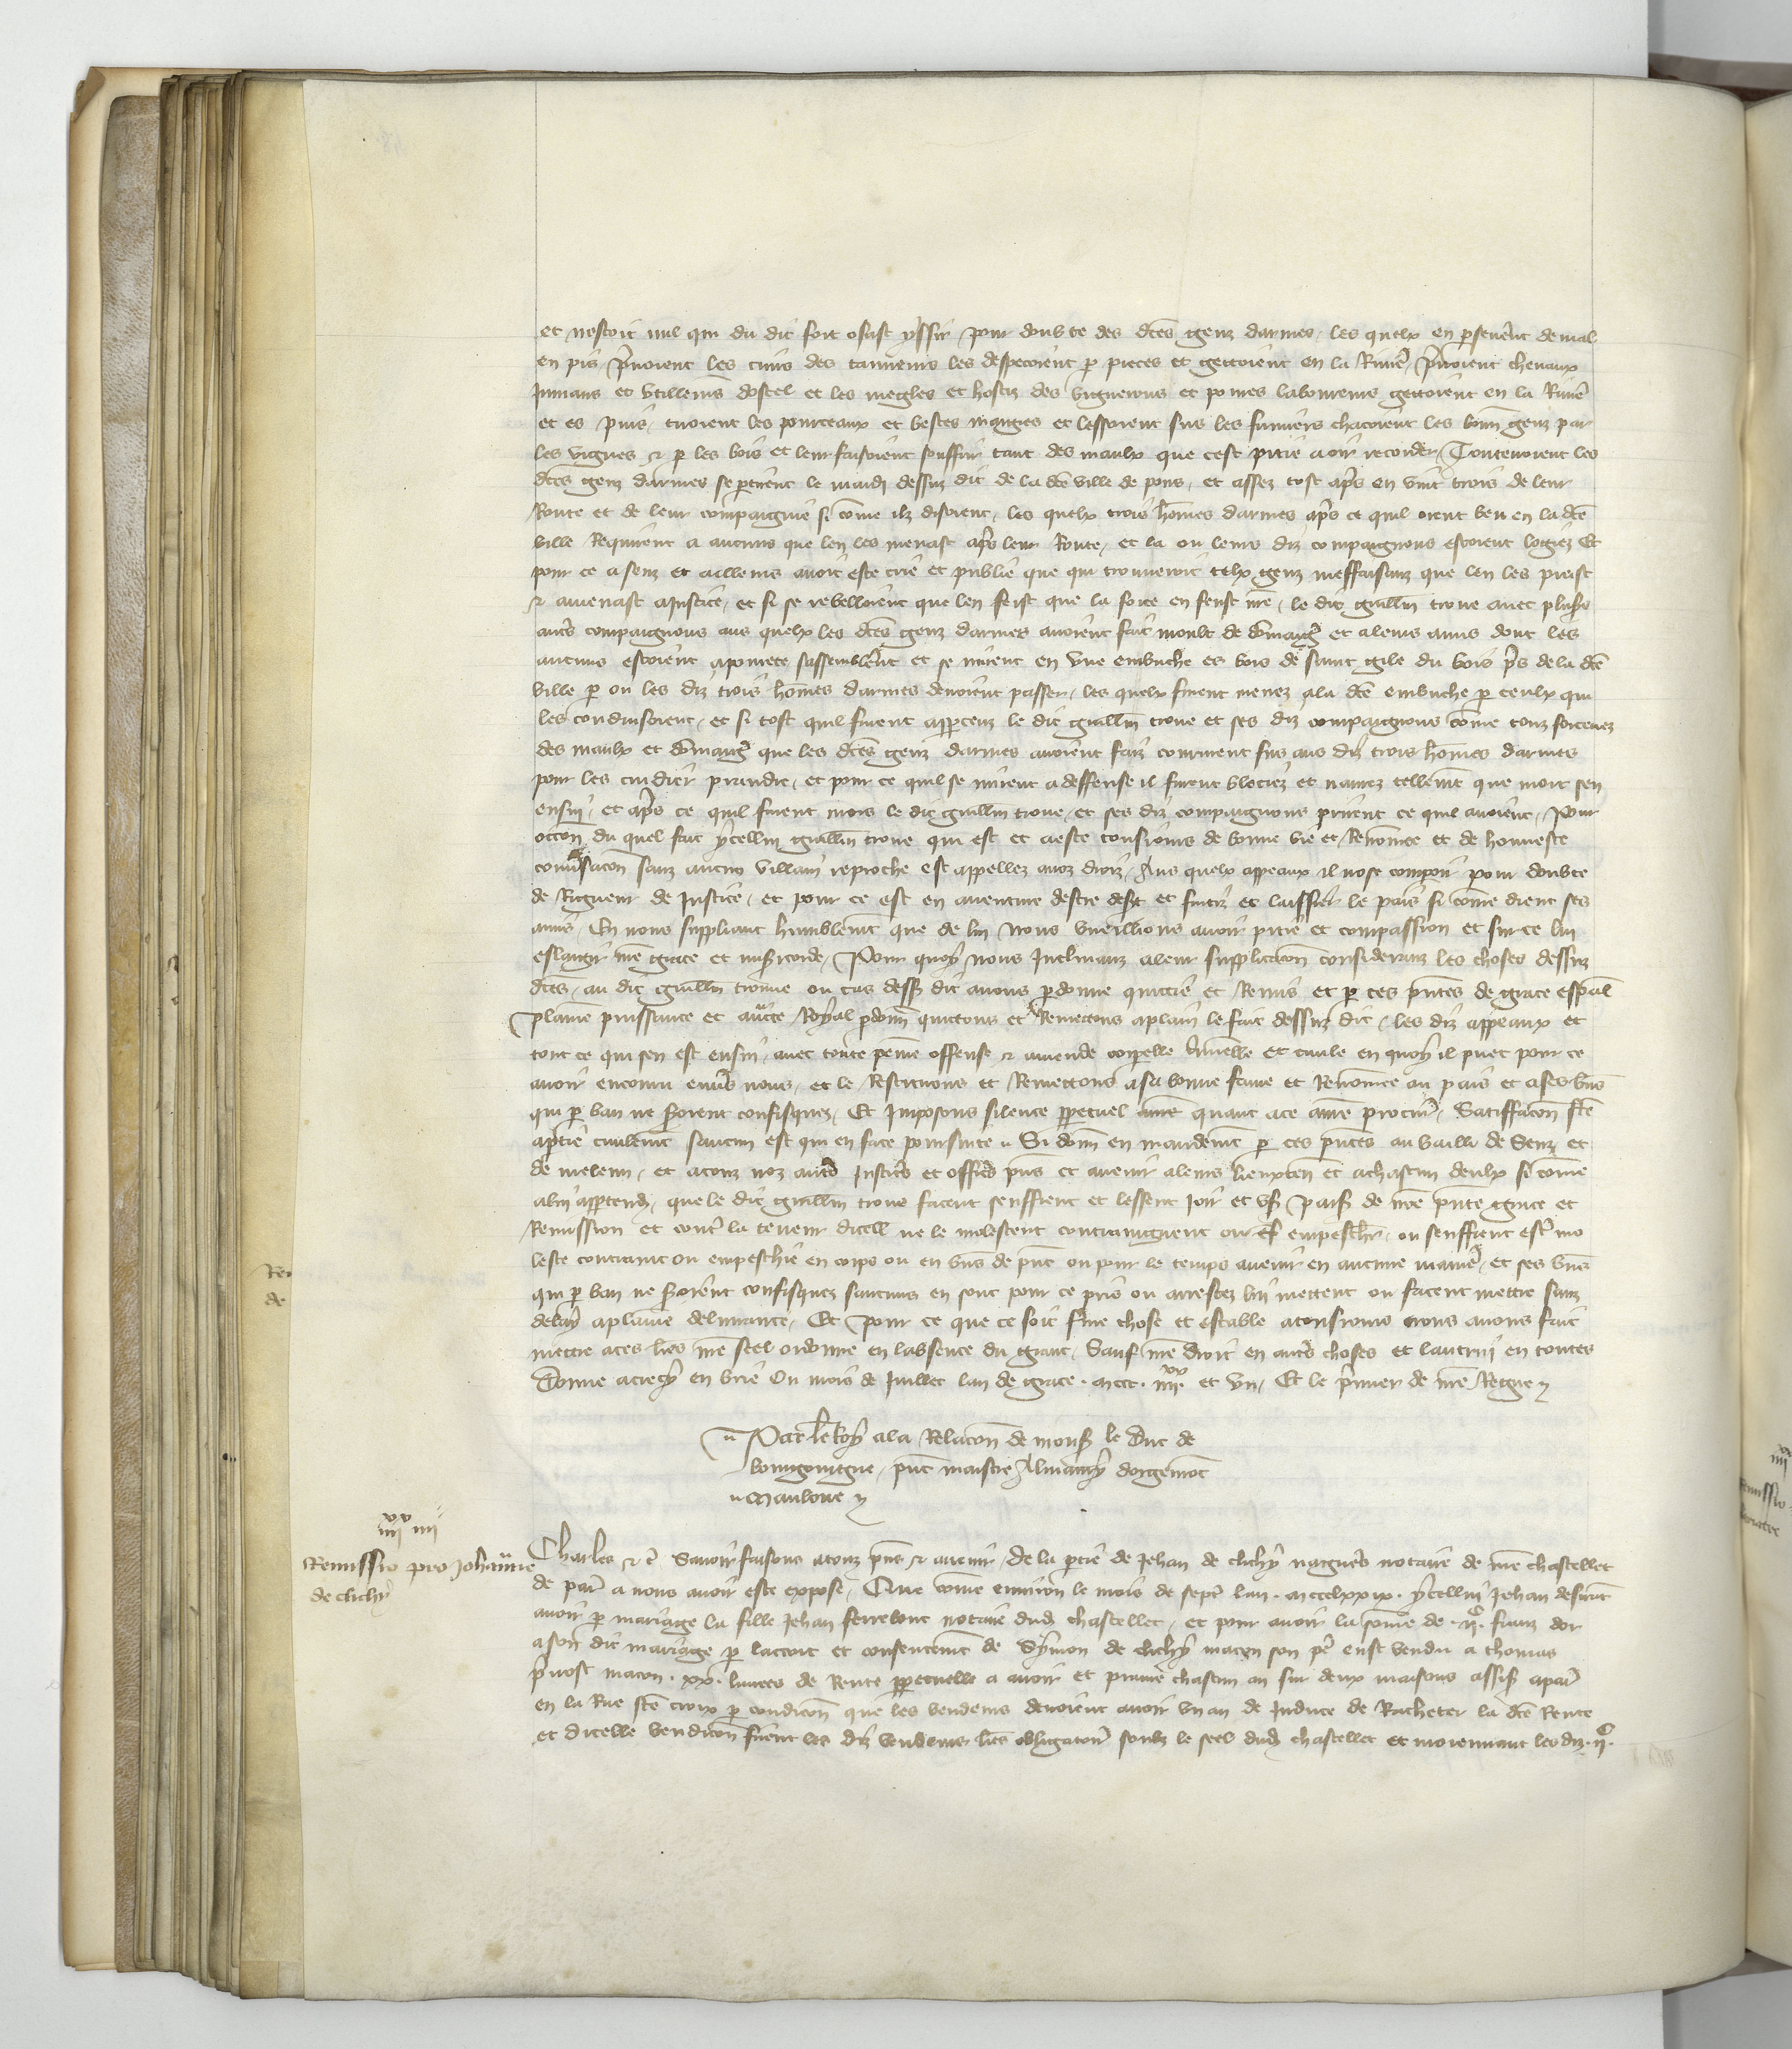 et nestoit nul qui du dit fort osast yssir pour doubte des dces genz darmes, les quelx en perseverent de mal
en pis, prenoient les cuirs des tanneurs les despecoient p pieces et gettoient en la Riviere, prenoient chevaux
jumans et utillemens dostel et les megles et hostiz des vignerons et povres laboureurs gettoient en la Riviere
et es puis, tuoient les pourceaux et bestes mangies et lessoient sus les fumiers chacoient les bonnes genz par
les vignes & p les bois et leur faisoient souffrir tant des maulx que cest pitie a oir recorder, Toutevoient les
dces genz darmes se partirent le mardi dessuz dit de la dce ville de pons, et assez tost aprs en vint trois de leur
Route et de leur compaignie si come ilz disoient, les quelx trois homes darmes aprs ce quil orent beu en la dce
ville Requirent a aucuns que len les menast aprs leur Route, et la ou leurs diz compaignons estoient logiez Et
pour ce a senz et ailleurs avoit este crie et publie que qui trouveroit telx genz meffaisanz que len les preist
& amenast a justice, et si se rebelloient que len feist que la force en feust nre, le dit guillm troue avec pluss
autrs compaignons aus quelx les dces genz darmes avoient fait moult de domaige et a leurs amis dont les
aucuns estoient a povrete sassemblerent et se mirent en une embuche es bois de saint gile du bois prs de la dce
ville p ou les diz trois homes darmes devoient passer, les quelx furent menez a la dce embuche p ceulx qui
les conduisoient, et si tost quil furent apperceuz le dit guillm troue et ses diz compaignons come touz forcenez
des maulx et domaiges que les dces genz darmes avoient faiz coururent sus aus diz trois homes darmes
pour les cuidier prandre, et pour ce quil se mirent a deffense il furent bleciez et navrez tellemt que mort sen
ensui, et aprs ce quil furent mors le dit guillm troue et ses diz compaignons prirent ce quil avoient, Pour
occon du quel fait ycellui guillm troue qui est et a este tousjours de bonne vie et Renomee et de honneste
conversacon sanz aucun villain reproche est appellez a noz droiz, Aus quelx appeaux il nose comparoir pour doubte
de Rigueur de justice, et pour ce est en aventure destre desert et fuitiz et laissier le pais si come dient ses
amis, En nous suppliant humblemt que de lui nous vueillions avoir pitie et compassion et sur ce lui
eslargir nre grace et misericorde, Pour quoy nous jnclinanz a leur supplicacon consideranz les choses dessuz
dces, au dit guillm troue ou cas dess dit avons pdonne quittie et Remis et p ces pntes de grace espal
plaine puissance et aucte Royal pdonns quittons et Remettons a plain le fait dessuz dit, les diz appeaux et
tout ce qui sen est ensui, avec toute peine offense & amende corpelle criminelle et civile en quoy il puet pour ce
avoir encouru envrs nous, et le Restituons et Remettons a sa bonne fame et Renomee au pais et a ses bns
qui p ban ne seroient confisquez, Et jmposons silence ppetuel quant a ce a nre procur, Satisffacon fte
a ptie civilemt saucun est qui en face poursuite, Si donns en mandemt p ces pntes au bailli de Senz et
de meleun, et a touz noz autrs justicrs et officrs pns et avenir a leurs lieuxten et a chascun deulx si come
a lui appartendra, que le dit guillm troue facent seuffrent et lessent joir et user paisiblmt de nre pnte grace et
Remission et contre la teneur dicelle ne le molestent contraignent ou empeschent, ou seuffrent estre mo
leste contraint ou empeschie en corps ou en bns de pnt ou pour le temps avenir en aucune maniere, et ses bns
qui p ban ne seroient confisquez saucuns en sont pour ce pris ou arrestez lui mettent ou facent mettre sanz
delay a plaine delivrance, Et pour ce que ce soit ferme chose et estable a tousjours nous avons fait
mettre a ces lres nre scel ordonne en labsence du grant, Sauf nre droit en autrs choses et lautrui en toutes
Donne a crecy en brie Ou mois de juillet lan de grace. mccc. iiijxx et un, Et le premier de nre Regne
Par le Roy a la Relacon de mons le Duc de
bourgoingne, pnt maistre Almaury dorgemont
Maulone
iiijxx iiij
Remissio pro johanne
de clichy
Charles &c Savoir faisons a touz pns & avenir, De la ptie de jehan de clichy nagues notaire de nre chastellet
de paris a nous avoir este expose, Que come environ le mois de sept lan. mccclxxix. ycellui jehan desirant
avoir p mariage la fille jehan ferrebouc notaire dud chastellet, et pour avoir la some de. ijc. frans dor
a son dit mariage p lacort et consentemt de Symon de clichy macon son pere eust vendu a thomas
prvost macon. xx. livrees de Rente ppetuelle a avoir et prenre chascun an sur deux maisons assises a paris
en la Rue ste croix p condicon que les vendeurs devoient avoir un an de jnduce de Racheter la dce Rente
et dicelle vendicon furent les diz vendeurs lres obligatoirs soubz le seel dud chastellet et moiennant les diz. ijc.